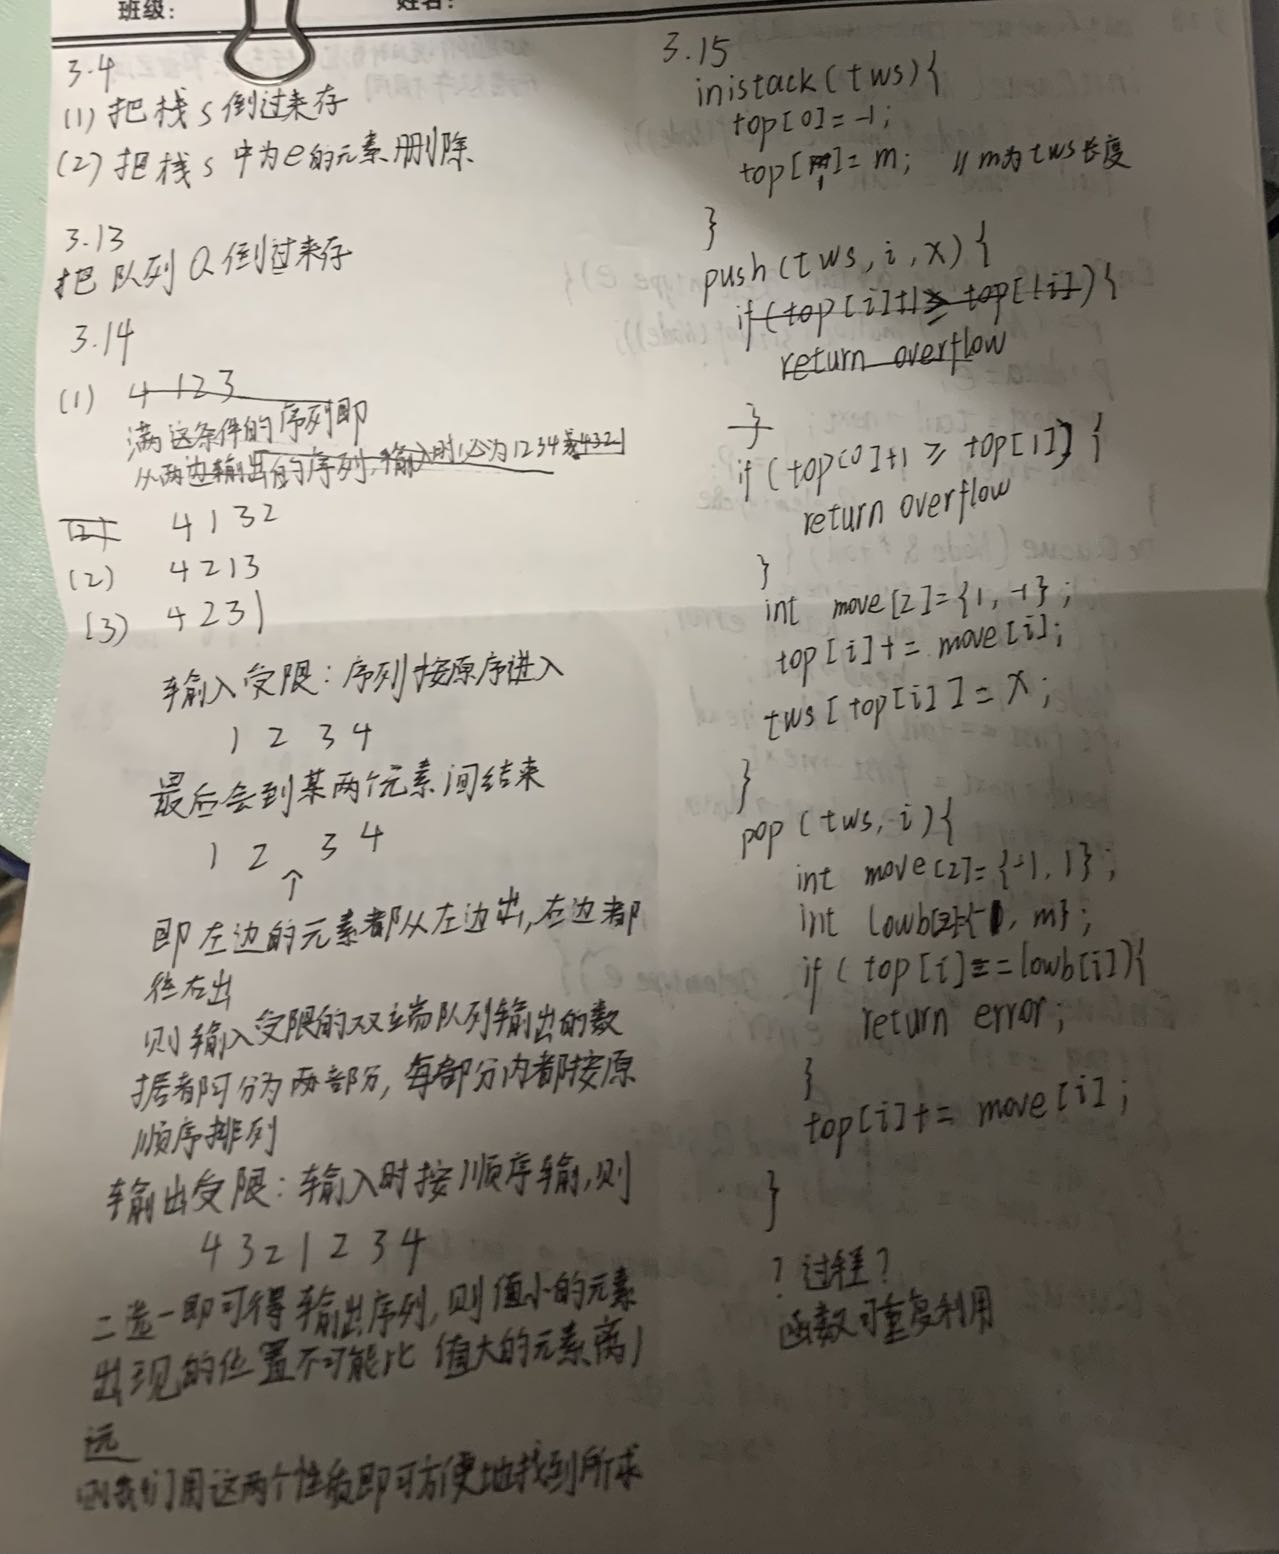 班级:
姓名:
3.4
(1) 把栈 S 倒过来存
(2) 把栈 S 中为 e 的元素删除
3.13
把队列 Q 倒过来存
3.14
(1) 4 1 2 3
满这条件的序列即
从两边输出的序列,输入时必为1234或4321
(2) 4 1 3 2
(2) 4 2 1 3
(3) 4 2 3 1
输入受限:序列按原序进入
1 2 3 4
最后会到某两个元素间结束
1 2 ↑ 3 4
即左边的元素都从左边出,右边都
往右出
则输入受限的双端队列输出的数
据都可分为两部分,每部分内都按原
顺序排列
输出受限:输入时按顺序输,则
4 3 2 1 2 3 4
二选一即可得输出序列,则值小的元素
出现的位置不可能比 值大的元素离1
远
则我们用这两个性质即可方便地找到所求
3.15
inistack(tws){
top[0]=-1;
top[1]=m; //m为tws长度
}
push(tws,i,x){
if(top[i]+1≥top[!i]){
return overflow
}
if(top[0]+1≥top[1]){
return overflow
}
int move[2]={1,-1};
top[i]+=move[i];
tws[top[i]]=x;
}
pop(tws,i){
int move[2]={-1,1};
int lowb[2]={-1,m};
if(top[i]==lowb[i]){
return error;
}
top[i]+=move[i];
}
?过程?
函数可重复利用